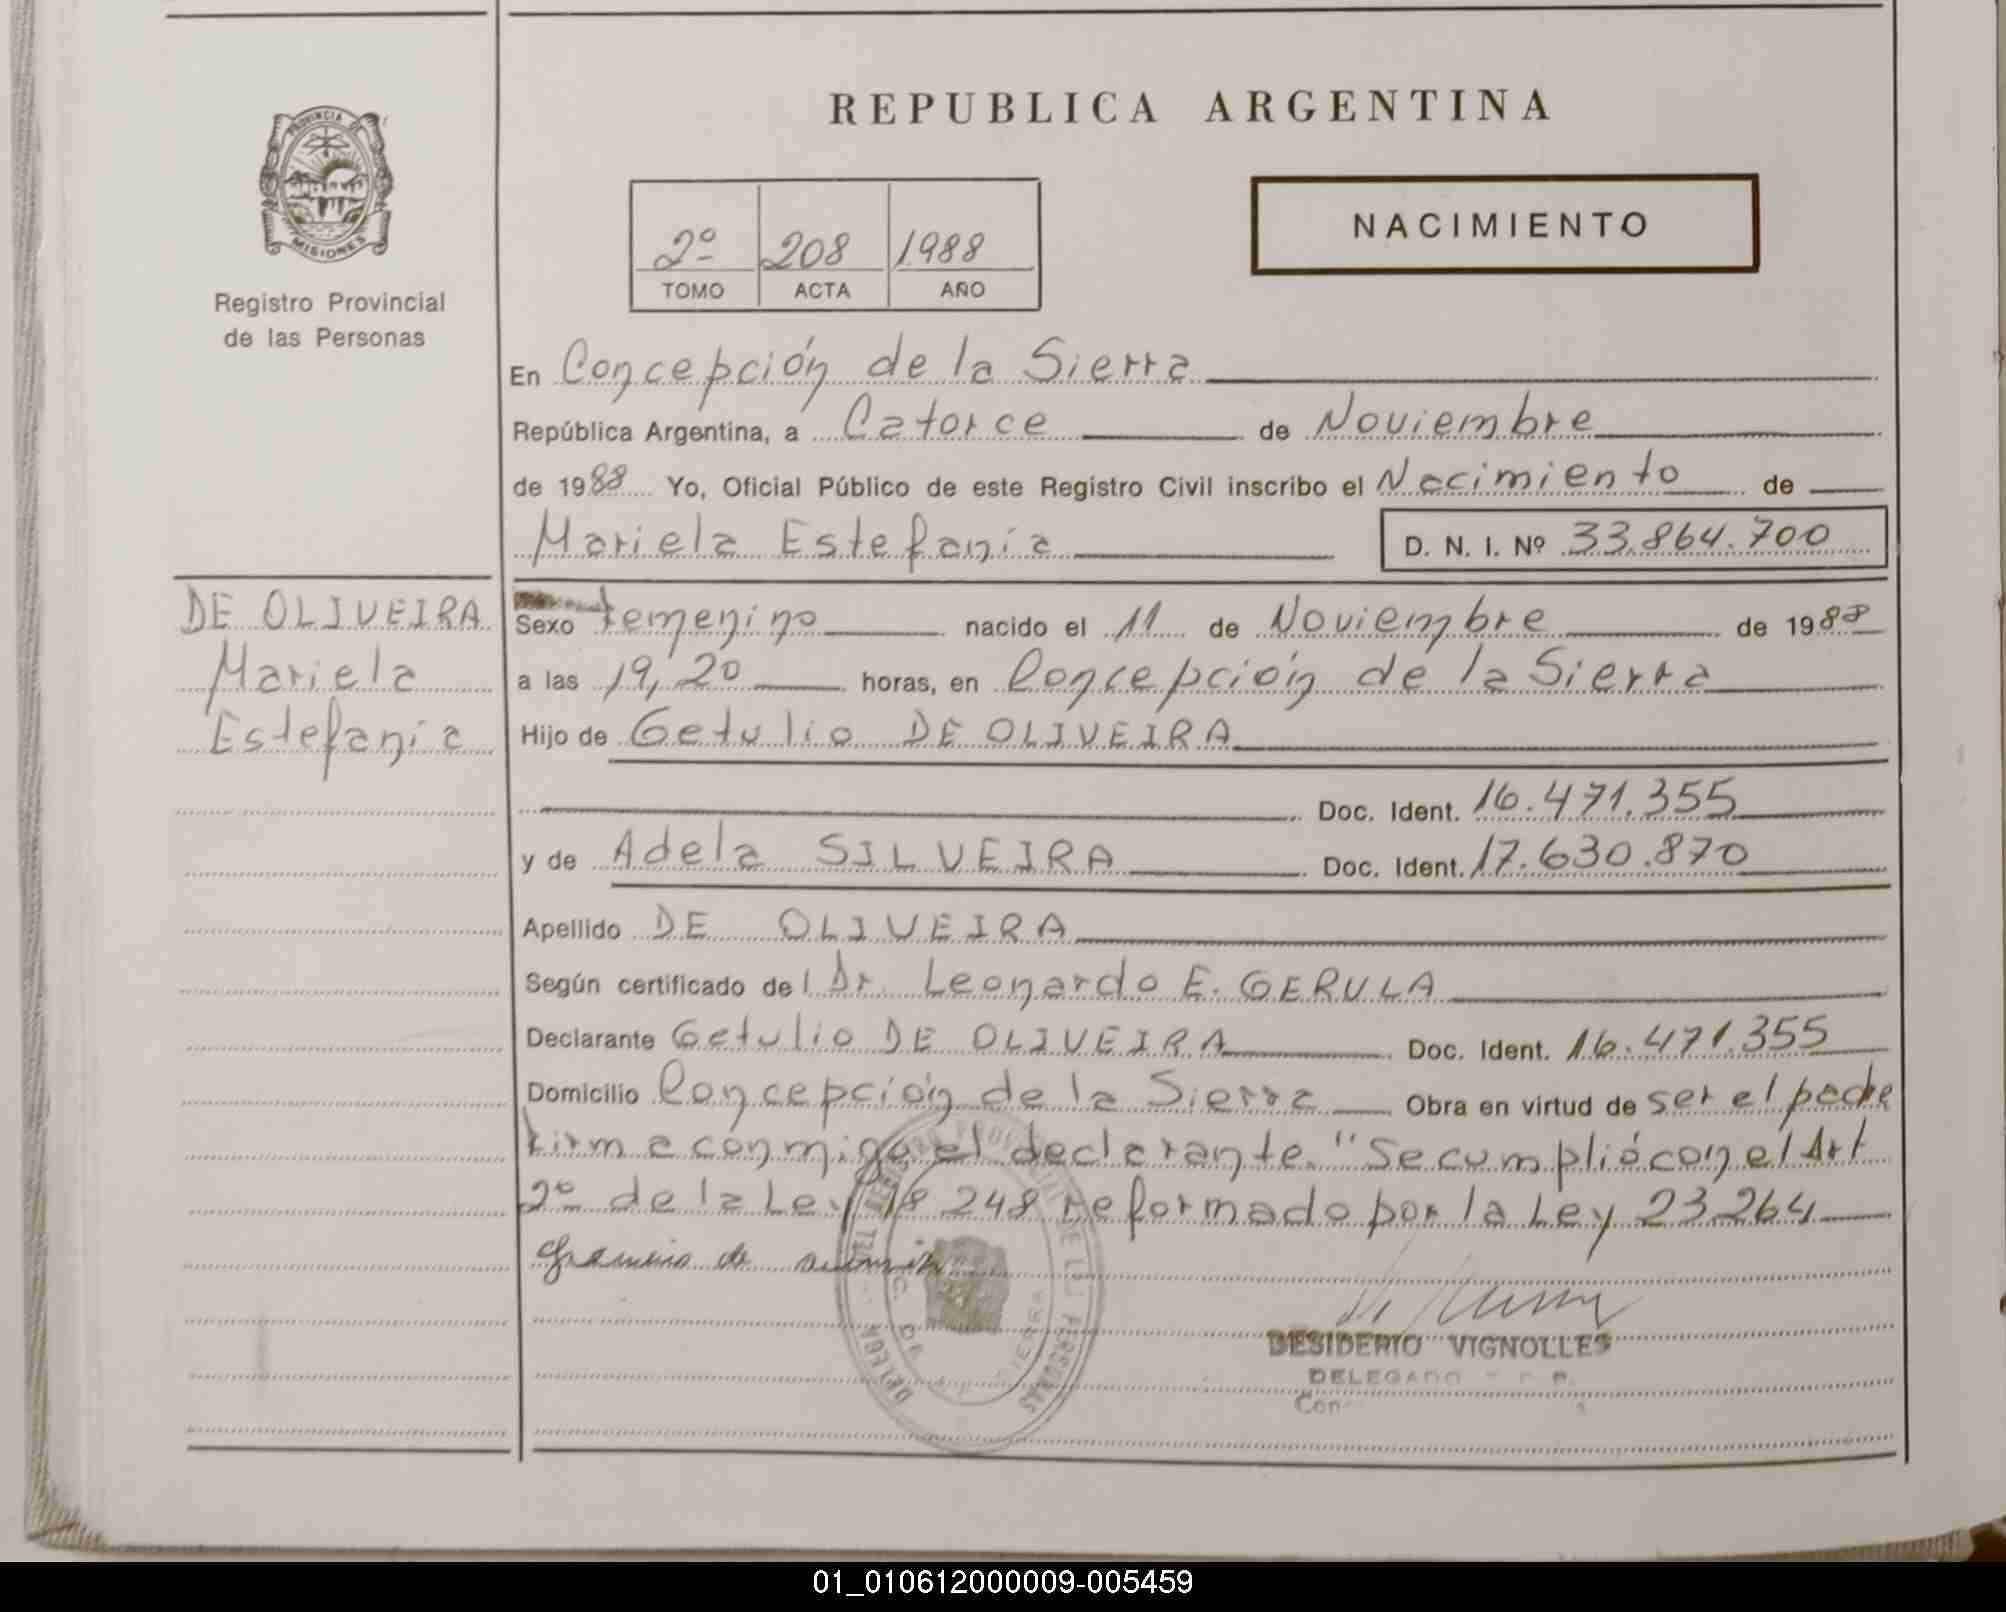 REPUBLICA ARGENTINA
PROVINCIA DE
MISIONES
Registro Provincial
de las Personas
2º 208 1988
TOMO ACTA AÑO
NACIMIENTO
En Concepción de la Sierra
República Argentina, a Catorce de Noviembre
de 1988 Yo, Oficial Público de este Registro Civil inscribo el Nacimiento de
Mariela Estefania D. N. I. Nº 33.864.700
DE OLIVEIRA
Mariela
Estefania
Sexo femenino nacido el 11 de Noviembre de 1988
a las 19,20 horas, en Concepción de la Sierra
Hijo de Getulio DE OLIVEIRA
Doc. Ident. 16.471.355
y de Adela SILVEIRA Doc. Ident. 17.630.870
Apellido DE OLIVEIRA
Según certificado del Dr. Leonardo E. GERULA
Declarante Getulio DE OLIVEIRA Doc. Ident. 16.471.355
Domicilio Concepción de la Sierra Obra en virtud de ser el padre
firma conmigo el declarante. "Se cumplió con el Art
2º de la Ley 18 248 reformado por la Ley 23.264
de
DESIDERIO VIGNOLLES
DELEGADO
01_010612000009-005459